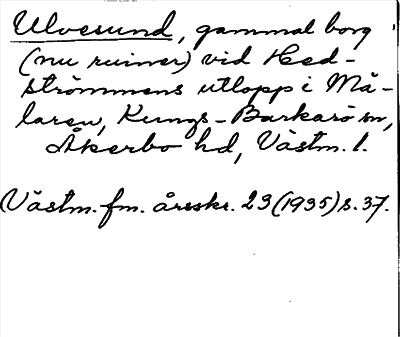 Ulvesund, gammal borg
(nu ruiner) vid Hed-
strömmens utlopp i Mä-
laren, Kungs-Barkarö sn,
Åkerbo hd, Västm. l.
Västm. fm. årsskr. 23 (1935) s. 37.